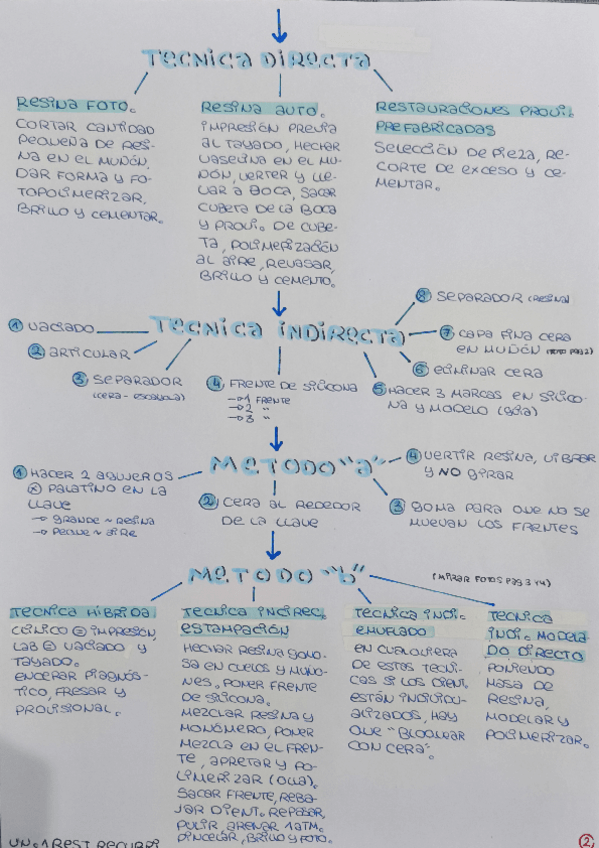 TECNICA DIRECTA
RESINA FOTO.
CORTAR CANTIDAD
PEQUEÑA DE RESI-
NA EN EL MUÑÓN,
DAR FORMA Y FO-
TOPOLIMERIZAR,
BRILLO Y CEMENTAR.
RESINA AUTO.
IMPRESIÓN PREVIA
AL TAYADO, HECHAR
VASELINA EN EL MU-
ÑÓN, VERTER Y LLE-
VAR A BOCA, SACAR
CUBETA DE LA BOCA
Y PROVI. DE CUBE-
TA, POLIMERIZACIÓN
AL AIRE, REVASAR,
BRILLO Y CEMENTO.
RESTAURACIONES PROVI.
PREFABRICADAS
SELECCIÓN DE PIEZA, RE-
CORTE DE EXCESO Y CE-
MENTAR.
TECNICA INDIRECTA
1 VACIADO
2 ARTICULAR
3 SEPARADOR
(CERA-ESCAYOLA)
4 FRENTE DE SILICONA
→1 FRENTE
→2 "
→3 "
5 HACER 3 MARCAS EN SILICO-
NA Y MODELO (GUIA)
6 ELIMINAR CERA
7 CAPA FINA CERA
EN MUÑÓN (FOTO PAG 2)
8 SEPARADOR (RESINA)
METODO "a"
1 HACER 2 AGUJEROS
x PALATINO EN LA
LLAVE
→ GRANDE ~ RESINA
→ PEQUE ~ AIRE
2 CERA ALREDEDOR
DE LA LLAVE
3 GOMA PARA QUE NO SE
MUEVAN LOS FRENTES
4 VERTIR RESINA, VIBRAR
Y NO GIRAR
METODO "b"
(MIRAR FOTOS PAG 3 Y 4)
TECNICA HIBRIDA
CLÍNICO = IMPRESIÓN,
LAB = VACIADO Y
TAYADO.
ENCERAR DIAGNÓS-
TICO, FRESAR Y
PROVISIONAL.
TECNICA INDIREC.
ESTAMPACIÓN
HECHAR RESINA GOMO-
SA EN CUELLOS Y MUÑO-
NES. PONER FRENTE
DE SILICONA.
MEZCLAR RESINA Y
MONÓMERO, PONER
MEZCLA EN EL FREN-
TE, APRETAR Y PO-
LIMERIZAR (OLLA).
SACAR FRENTE, REBA-
JAR DIENT. REPASAR,
PULIR, ARENAR 1ATM.
PINCELAR, BRILLO Y FOTO.
TECNICA INDI.
ENMUFLADO
EN CUALQUIERA
DE ESTAS TECNI-
CAS SI LOS DIENT.
ESTÁN INDIVIDU-
ALIZADOS, HAY
QUE "BLOQUEAR
CON CERA".
TECNICA
INDI. MODELA
DO DIRECTO
PONIENDO
MASA DE
RESINA,
MODELAR Y
POLIMERIZAR.
2